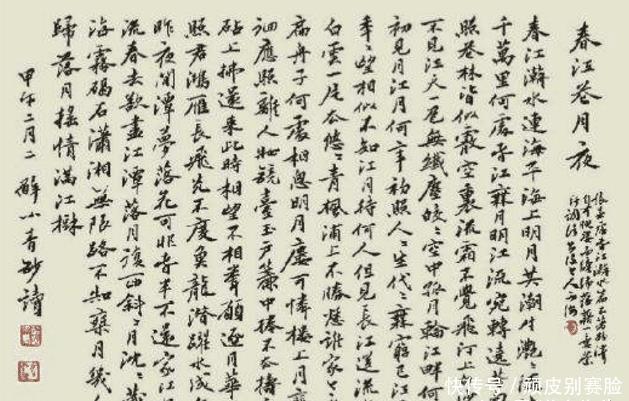 春江花月夜
春江潮水連海平海上明月共潮生灧
千萬里何處春江無月明江流宛轉遶芳
照花林皆似霰空裏流霜不覺飛汀上
不見江天一色無纖塵皎〻空中孤月輪江畔何
初見月江月何年初照人〻生代〻無窮已江
年〻望相似不知江月待何人但見長江送流
白雲一片去悠〻青楓浦上不勝愁誰家
扁舟子何處相思明月樓可憐樓上月
徊應照離人妝鏡臺玉戶簾中捲不去擣
砧上拂還來此時相望不相聞願逐月華
照君鴻雁長飛光不度魚龍潛躍水成
昨夜閑潭夢落花可憐春半不還家江
流春去欲盡江潭落月復西斜〻月沈〻
海霧碣石瀟湘無限路不知乘月幾
歸落月搖情滿江樹
甲午二月二解小青抄讀
快传号/顽皮别赛脸